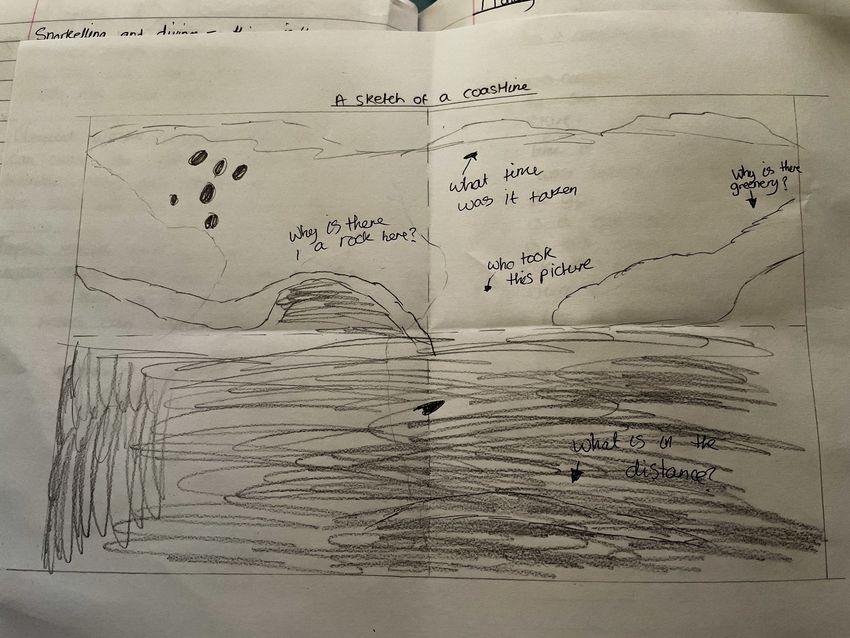 Snorkelling and diving
A sketch of a coastline
what time
was it taken
Why is there
greenery?
Why is there
a rock here?
who took
this picture
What is in the
distance?